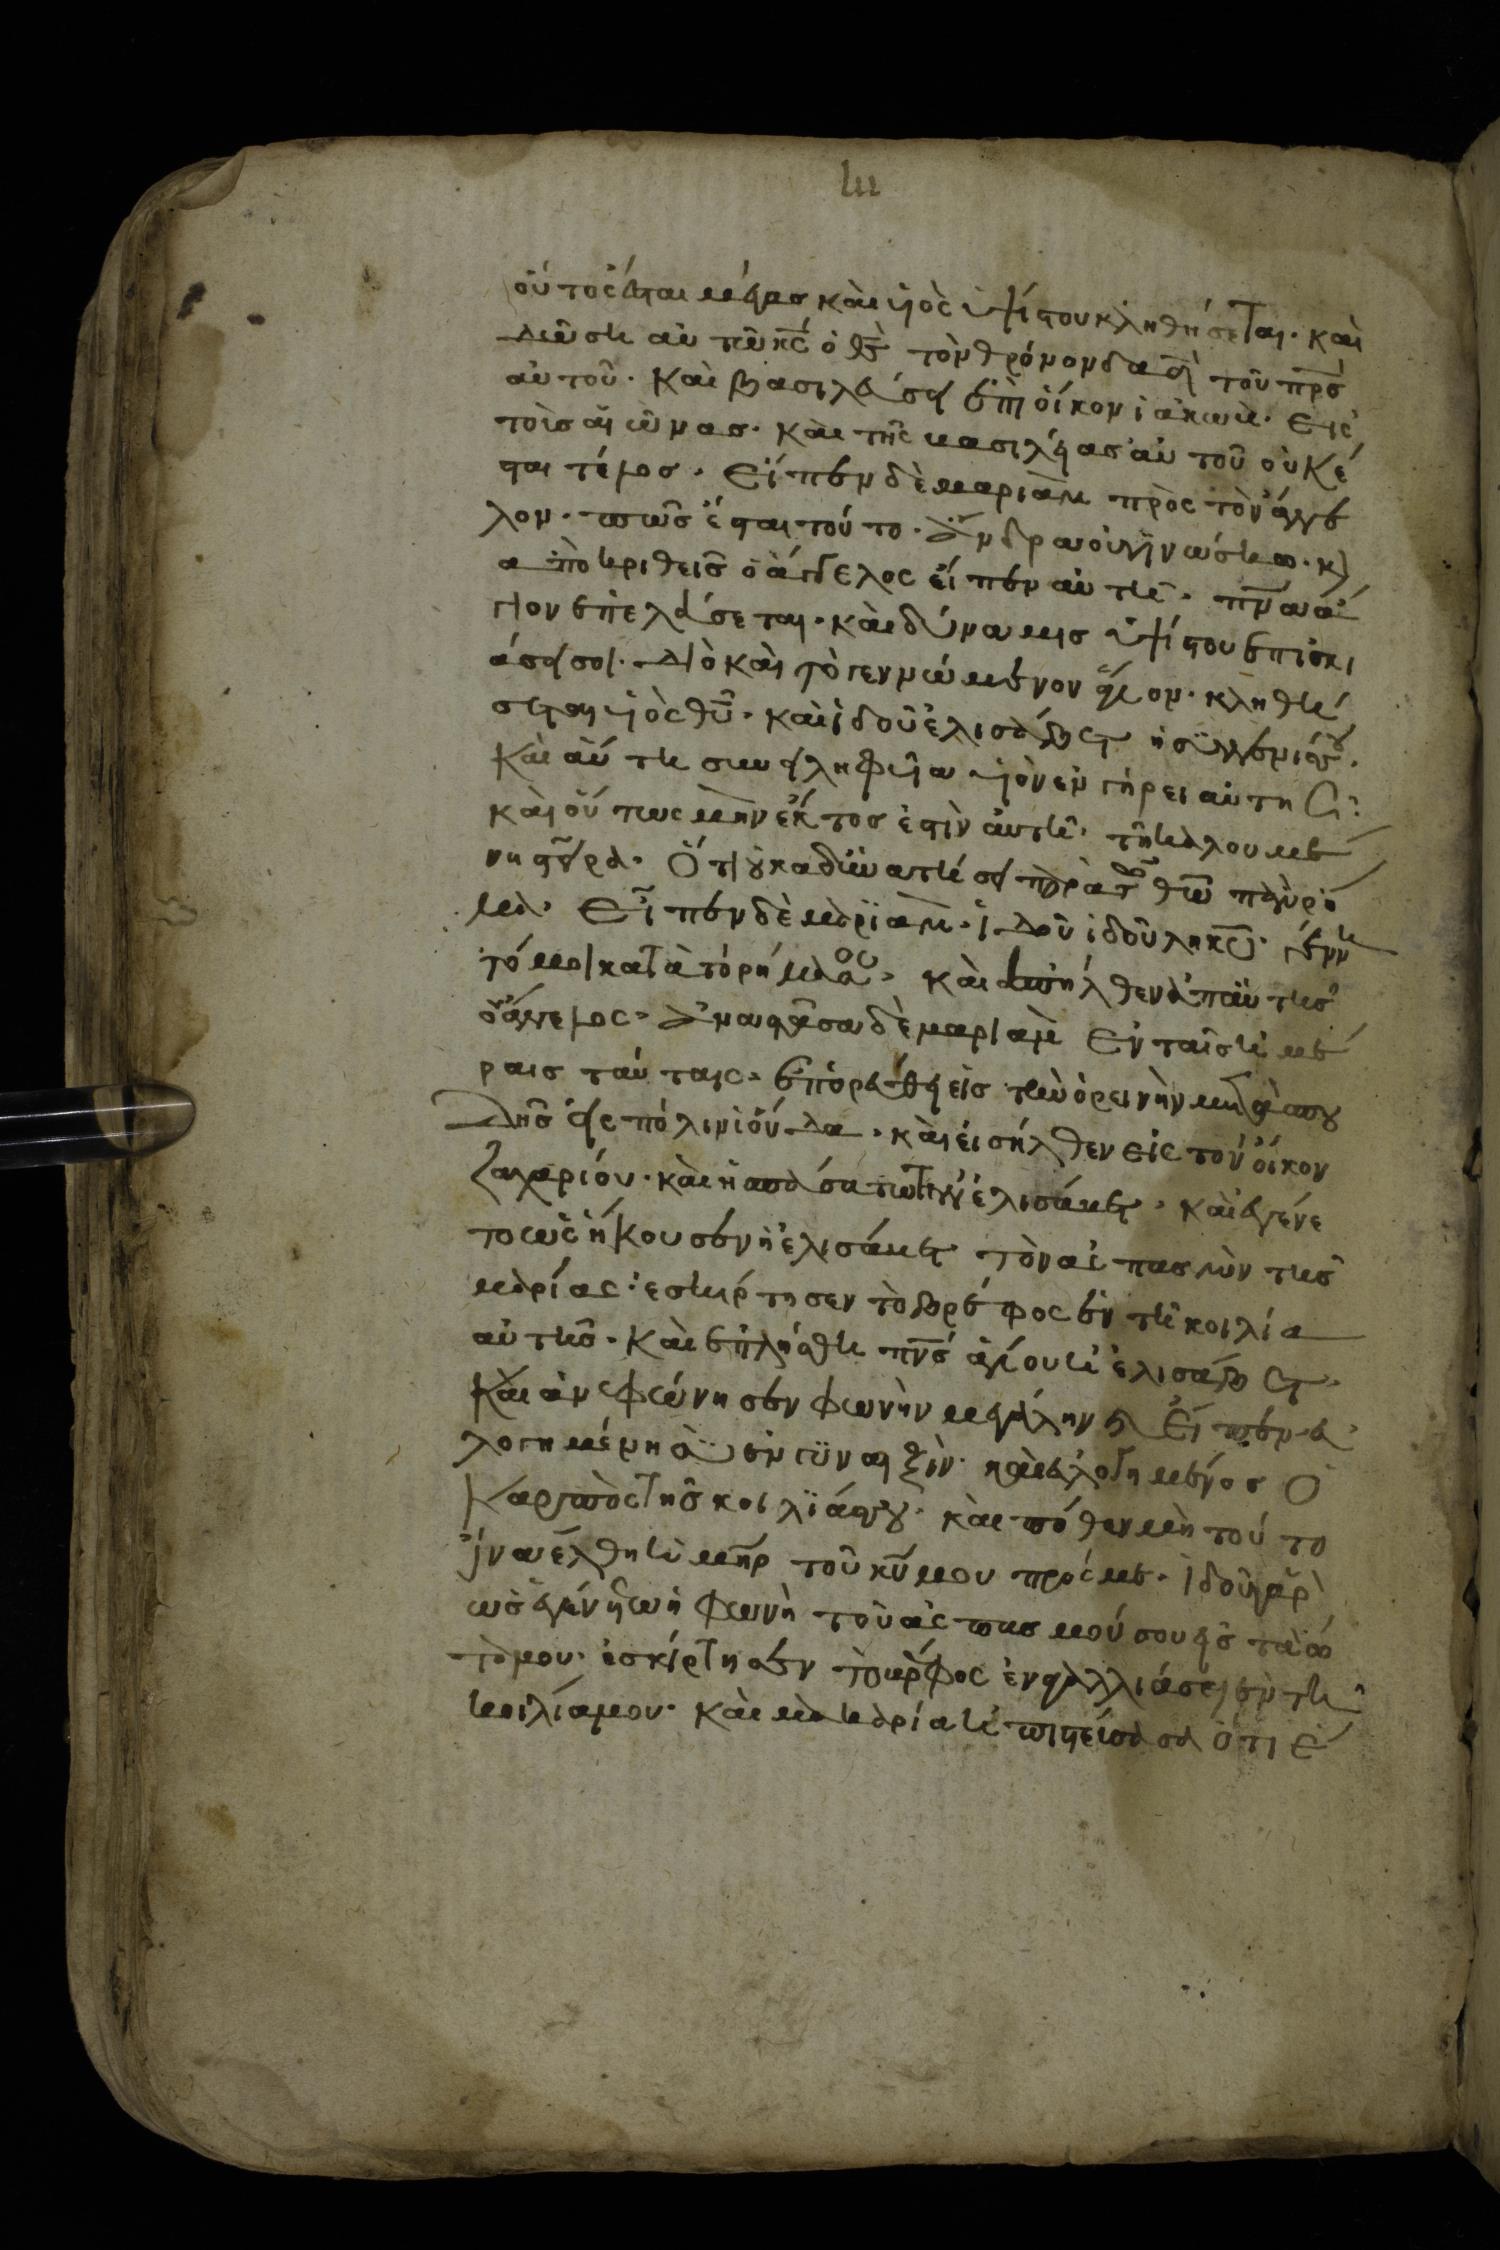 οὗτος ἔσται μέγας καὶ υἱὸς ὑψίστου κληθήσεται· καὶ
δώση αὐτῶ κς̄ ὁ θς̄ τὸν θρόνον δαδ̄ τοῦ πρ̄ς
αὐτοῦ· καὶ βασιλεύσει ἐπὶ οἶκον ἰακὼβ· εἰς
τοὶς αἰῶνας· καὶ τῆς βασιλείας αὐτοῦ οὐκ έ
σται τέλος· Εἶπεν δὲ μαριὰμ πρὸς τὸν άγγε
λον· πῶς έσται τούτο· ἄνδρα οὐ γϊνώσκω· κὶ
ἀποκριθεὶς ὁ άγγελος εἶπεν αὐτῆ· πνᾱ ά
γιον ἐπελεύσεται· καὶ δύναμις ὑψίστου ἐπισκι
άσει σοι· Διὸ καὶ τὸ γεννώμενον ἅγιον· κληθή
σεται υἱὸς θῦ· καὶ ἰδοῦ ἐλισάβετ ἡ συγγενίς σου·
καὶ αύτη συνειληφυῖα υἱὸν ἐν γήρει αὐτῆς·
καὶ οὗτος μὴν έκτος ἐστὶν αὐτῆ· τῆ καλουμέ
νη στείρα· Ότι οὐκ αδυνατήσει παρὰ τῶ θῶ πᾶν ῥῆ
μα· Εἶπεν δὲ μαριὰμ· ἰδοῦ ἡ δοῦλη κῦ· γέν
τό μοι κατὰ τό ρήμα σου· καὶ ἀπήλθεν ἀπ αὐτῆς
ὁ άγγελος· Ἀναστᾶσα δὲ μαριὰμ Ἐν ταῖς ἡμέ
ραις ταύταις· ἐπορεύθη εἰς τὴν ὁρεινὴν μετὰ σπου
δῆς εἰς πόλιν ἰούδα· καὶ εἰσήλθεν εἰς τὸν οἶκον
ζαχαρίου· καὶ ἠσπάσατο τὴν ἐλισάβετ· καὶ ἐγένε
το ὡς ήκουσεν ἡ ἐλισάβετ τὸν ἀσπασμὸν τῆς
μαρίας· ἐσκίρτησεν τὸ βρέφος ἐν τῆ κοιλία
αὐτῆς· καὶ ἐπλήσθη πνς̄ ἁγίου ἡ ἐλισάβετ·
καὶ ἀνεφώνησεν φωνὴν μεγάλην καὶ Εἶπεν· εὐ
λογημένη σὺ ἐν γυναιξὶν· καὶ εὐλογημένος Ὁ
καρπὸς τῆς κοιλϊάς σου· καὶ πόθεν μὴ τούτο
ἵνα έλθη ἡ μηρ̄ τοῦ κῦ μου πρός με· ἰδοῦ γὰρ
ὡς ἐγένετο ἡ φωνὴ τοῦ ἀσπασμού σου εἰς τὰ ὦ
τὰ μου· ἐσκίρτησεν τὸ βρέφος ἐν ἀγαλλιάσει ἐν τῆ
κοιλία μου· καὶ μακαρία ἡ πιστεύσασα ότι ἔ